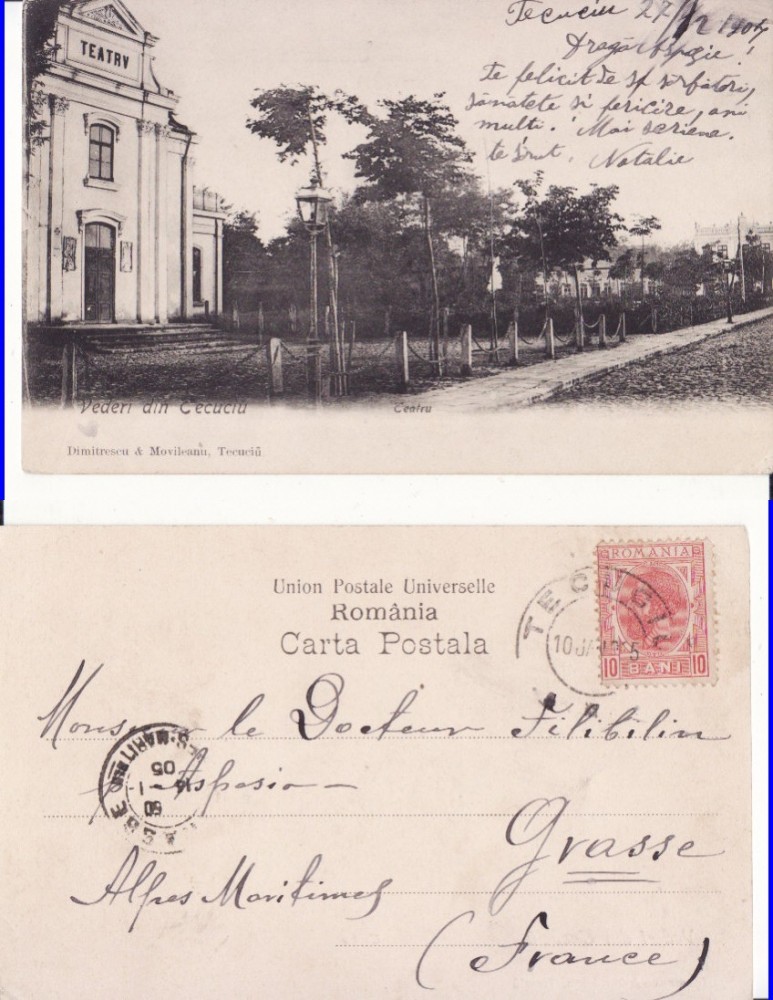 TEATRV
Tecuciu 27/12 1904
Dragă Aspazie!
te felicit de sf sărbători,
sănatete si fericire, ani
multi. Mai scriene.
te srut. Natalie
Vederi din Tecuciu
Teatru
Dimitrescu & Movileanu, Tecuciŭ
Union Postale Universelle
România
Carta Postala
ROMANIA
10 BANI 10
TECUCIU
10 JAN
5
Monsieur le Docteur Filibiliu
p. Aspasia —
Grasse
Alpes Maritimes
(France)
GRASSE
ALPES-MARITIMES
14 - 1
05